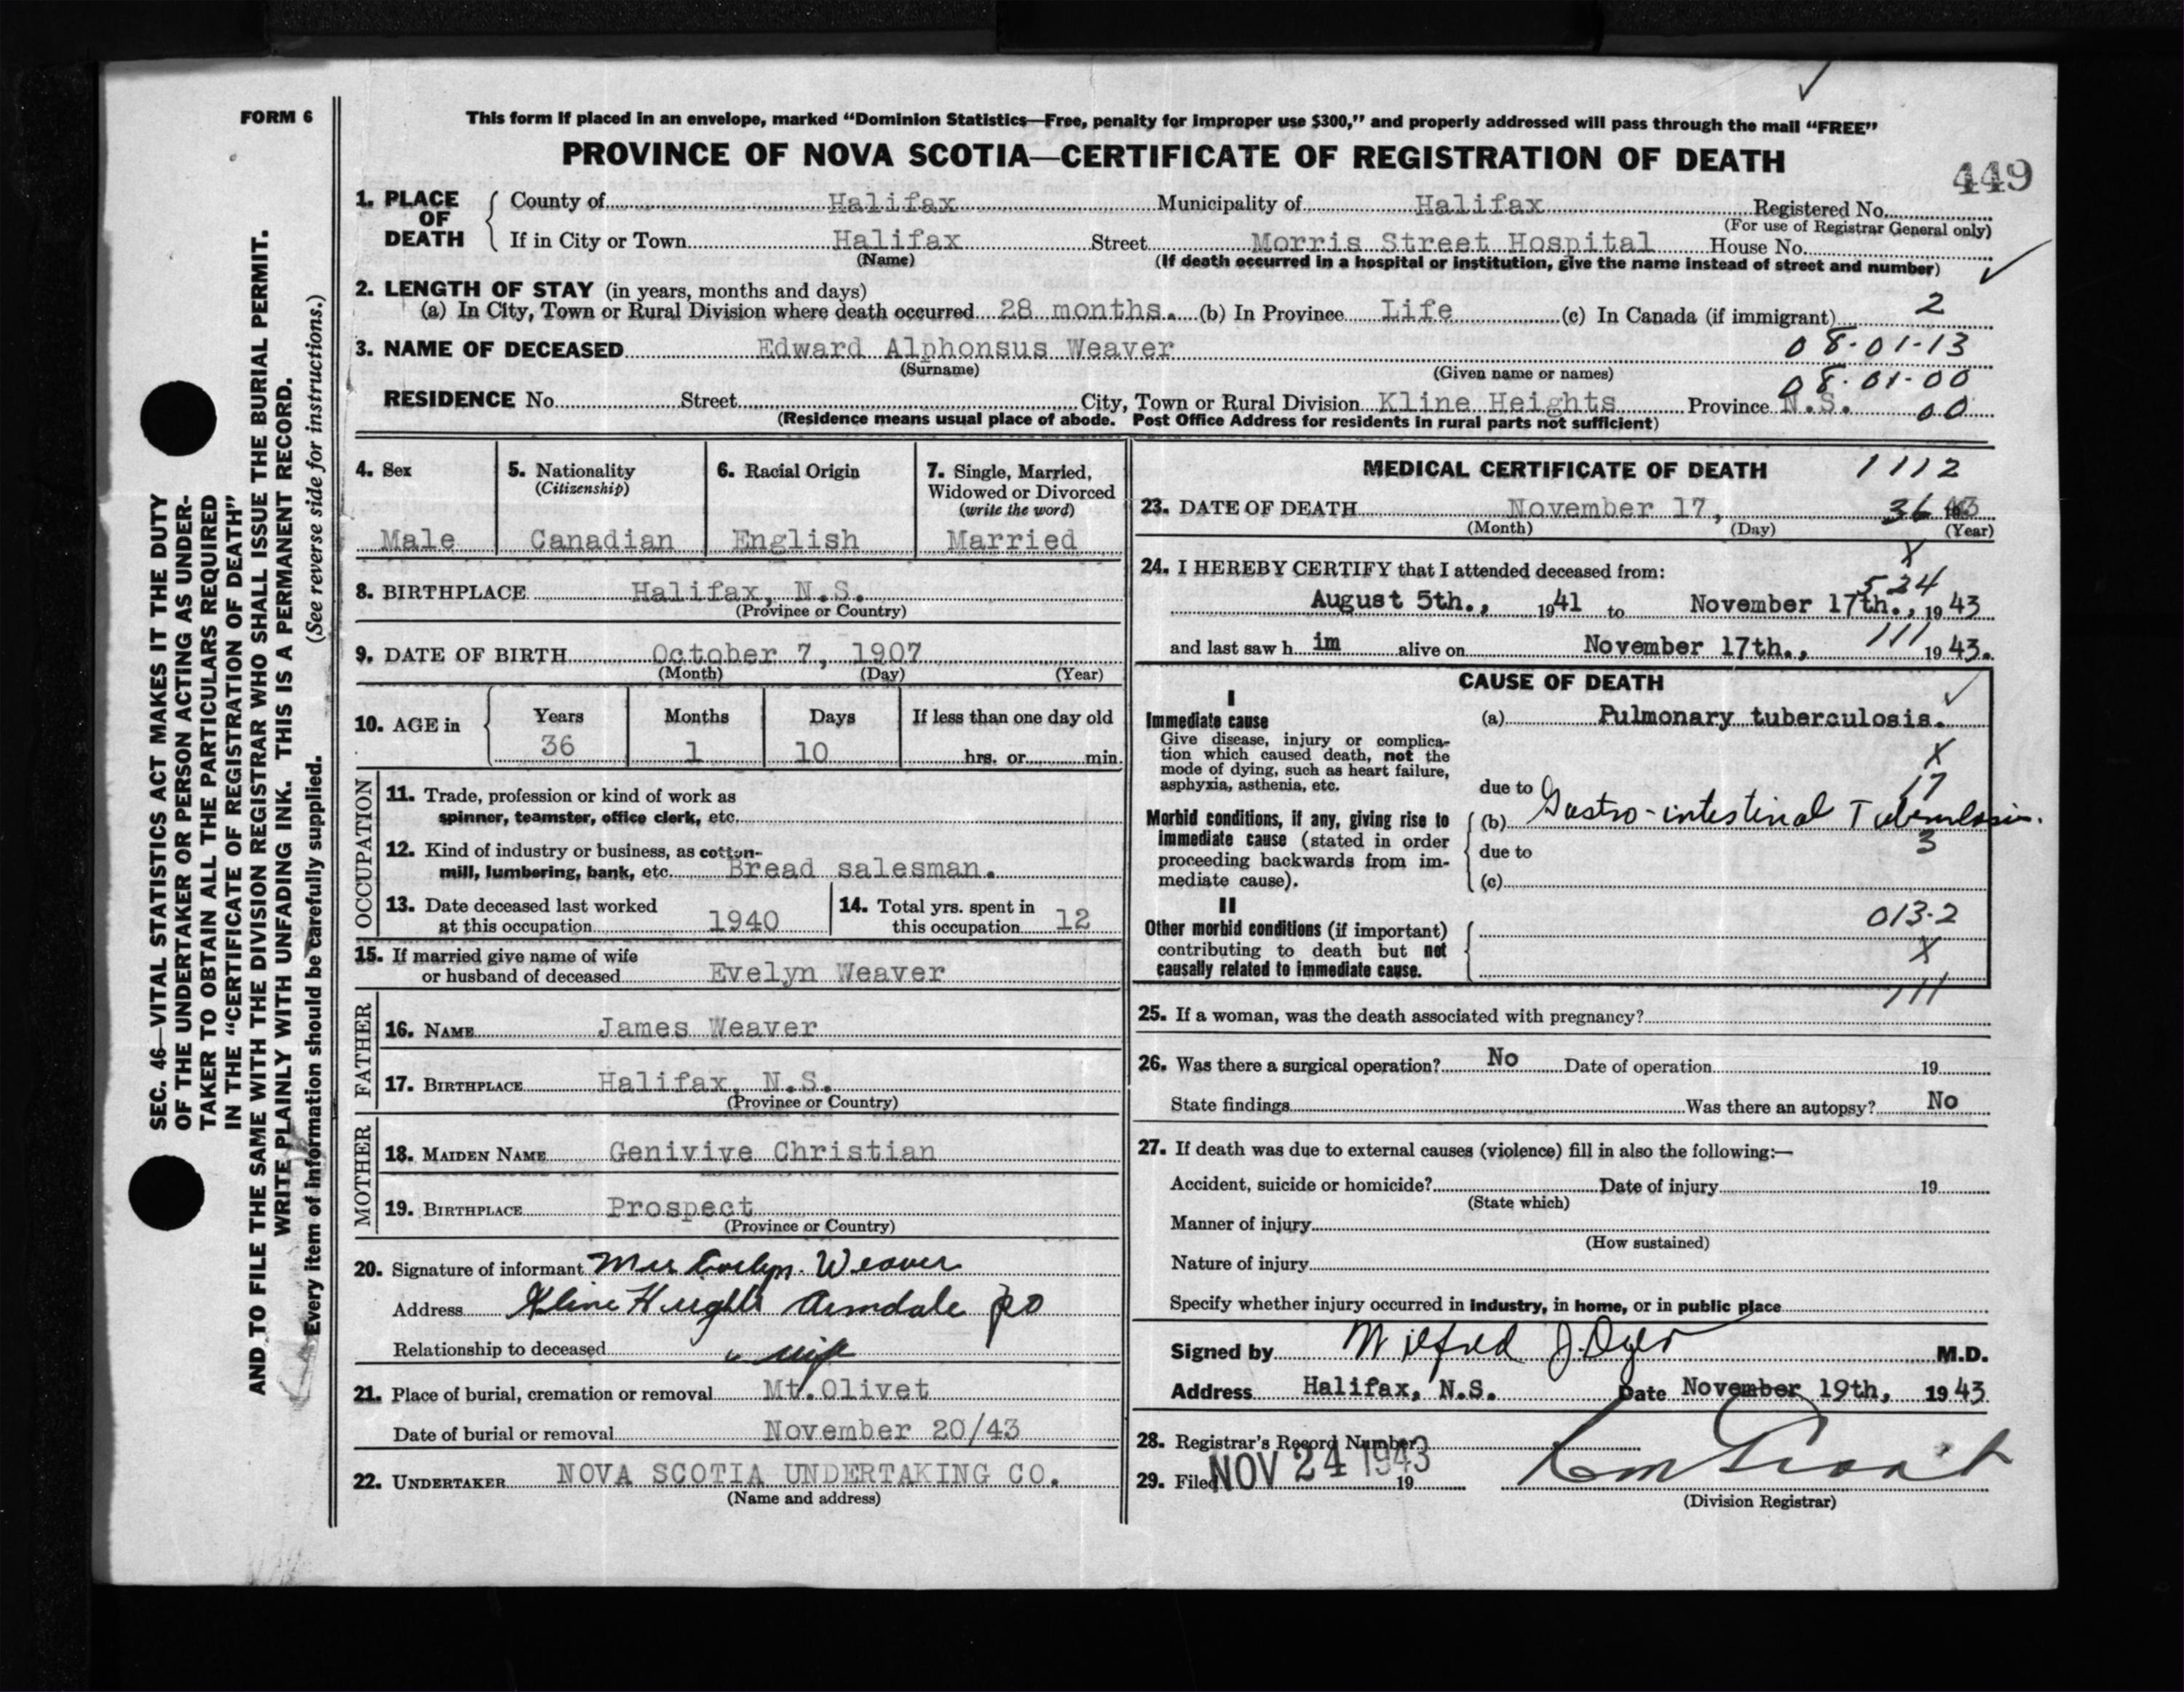 FORM 6
This form if placed in an envelope, marked “Dominion Statistics—Free, penalty for improper use $300,” and properly addressed will pass through the mail “FREE”
PROVINCE OF NOVA SCOTIA—CERTIFICATE OF REGISTRATION OF DEATH
449
1. PLACE OF DEATH
County of Halifax Municipality of Halifax Registered No.
(For use of Registrar General only)
If in City or Town Halifax Street Morris Street Hospital House No.
(Name) (If death occurred in a hospital or institution, give the name instead of street and number)
2. LENGTH OF STAY (in years, months and days)
(a) In City, Town or Rural Division where death occurred 28 months. (b) In Province Life (c) In Canada (if immigrant) 2
3. NAME OF DECEASED Edward Alphonsus Weaver 08-01-13
(Surname) (Given name or names) 08-01-00
RESIDENCE No. Street City, Town or Rural Division Kline Heights Province N.S. 00
(Residence means usual place of abode. Post Office Address for residents in rural parts not sufficient)
4. Sex
Male
5. Nationality
(Citizenship)
Canadian
6. Racial Origin
English
7. Single, Married,
Widowed or Divorced
(write the word)
Married
8. BIRTHPLACE Halifax, N.S.
(Province or Country)
9. DATE OF BIRTH October 7, 1907
(Month) (Day) (Year)
10. AGE in Years Months Days If less than one day old
36 1 10 hrs. or min.
OCCUPATION
11. Trade, profession or kind of work as
spinner, teamster, office clerk, etc.
12. Kind of industry or business, as cotton-
mill, lumbering, bank, etc. Bread salesman.
13. Date deceased last worked
at this occupation 1940
14. Total yrs. spent in
this occupation 12
15. If married give name of wife
or husband of deceased Evelyn Weaver
FATHER
16. NAME James Weaver
17. BIRTHPLACE Halifax, N.S.
(Province or Country)
MOTHER
18. MAIDEN NAME Genivive Christian
19. BIRTHPLACE Prospect
(Province or Country)
20. Signature of informant Mrs Evelyn Weaver
Address Kline Hieghts Armdale PO
Relationship to deceased wife
21. Place of burial, cremation or removal Mt. Olivet
Date of burial or removal November 20/43
22. UNDERTAKER NOVA SCOTIA UNDERTAKING CO.
(Name and address)
MEDICAL CERTIFICATE OF DEATH 1112
23. DATE OF DEATH November 17, 36 43
(Month) (Day) (Year)
X
24. I HEREBY CERTIFY that I attended deceased from:
524
August 5th., 1941 to November 17th., 1943
and last saw him alive on November 17th., 111 1943.
CAUSE OF DEATH
I
Immediate cause (a) Pulmonary tuberculosis.
Give disease, injury or complica-
tion which caused death, not the
mode of dying, such as heart failure,
asphyxia, asthenia, etc.
X
due to 17
Morbid conditions, if any, giving rise to
immediate cause (stated in order
proceeding backwards from im-
mediate cause).
(b) Gastro-intestinal Tuberculosis.
due to 3
(c)
II
Other morbid conditions (if important)
contributing to death but not
causally related to immediate cause.
013-2
X
111
25. If a woman, was the death associated with pregnancy?
26. Was there a surgical operation? No Date of operation 19
State findings Was there an autopsy? No
27. If death was due to external causes (violence) fill in also the following:—
Accident, suicide or homicide? Date of injury 19
(State which)
Manner of injury
(How sustained)
Nature of injury
Specify whether injury occurred in industry, in home, or in public place
Signed by Wilfred J. Dyer M.D.
Address Halifax, N.S. Date November 19th, 1943
28. Registrar's Record Number
29. Filed NOV 24 1943 19
(Division Registrar)
SEC. 46—VITAL STATISTICS ACT MAKES IT THE DUTY
OF THE UNDERTAKER OR PERSON ACTING AS UNDER-
TAKER TO OBTAIN ALL THE PARTICULARS REQUIRED
IN THE “CERTIFICATE OF REGISTRATION OF DEATH”
AND TO FILE THE SAME WITH THE DIVISION REGISTRAR WHO SHALL ISSUE THE BURIAL PERMIT.
WRITE PLAINLY WITH UNFADING INK. THIS IS A PERMANENT RECORD.
Every item of information should be carefully supplied. (See reverse side for instructions.)